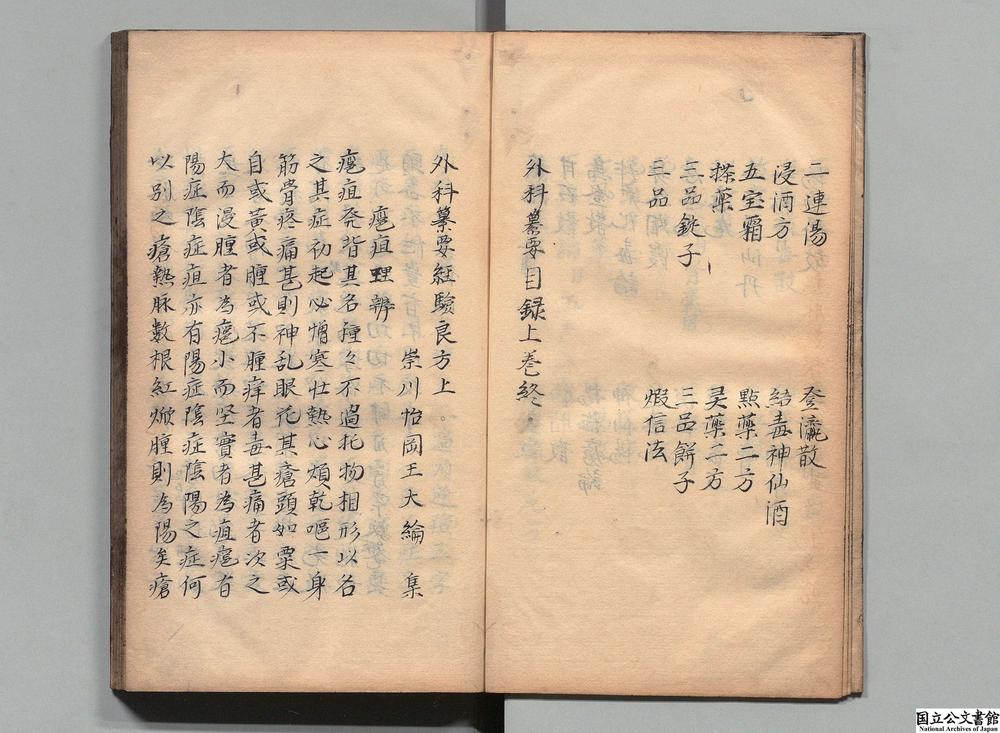 二連湯 登瀛散
浸酒方 結毒神仙酒
五宝霜 點藥二方
搽藥 灵藥二方
三品銚子 三品餅子
三品 煆信法
外科纂要目録上巻終
外科纂要経驗良方上
瘡疽理辨 崇川怡岡王大綸 集
瘡疽発背其名種々不過托物相形以名
之其症初起必憎寒壮熱心煩乾嘔一身
筋骨疼痛甚則神乱眼花其瘡頭如粟或
自或黄或腫或不腫痒者毒甚痛者次之
大而漫腫者為瘡小而坚實者為疽瘡有
陽症陰症疽亦有陽症陰症陰陽之症何
以别之瘡熱脉數根紅焮腫則為陽矣瘡
国立公文書館
National Archives of Japan